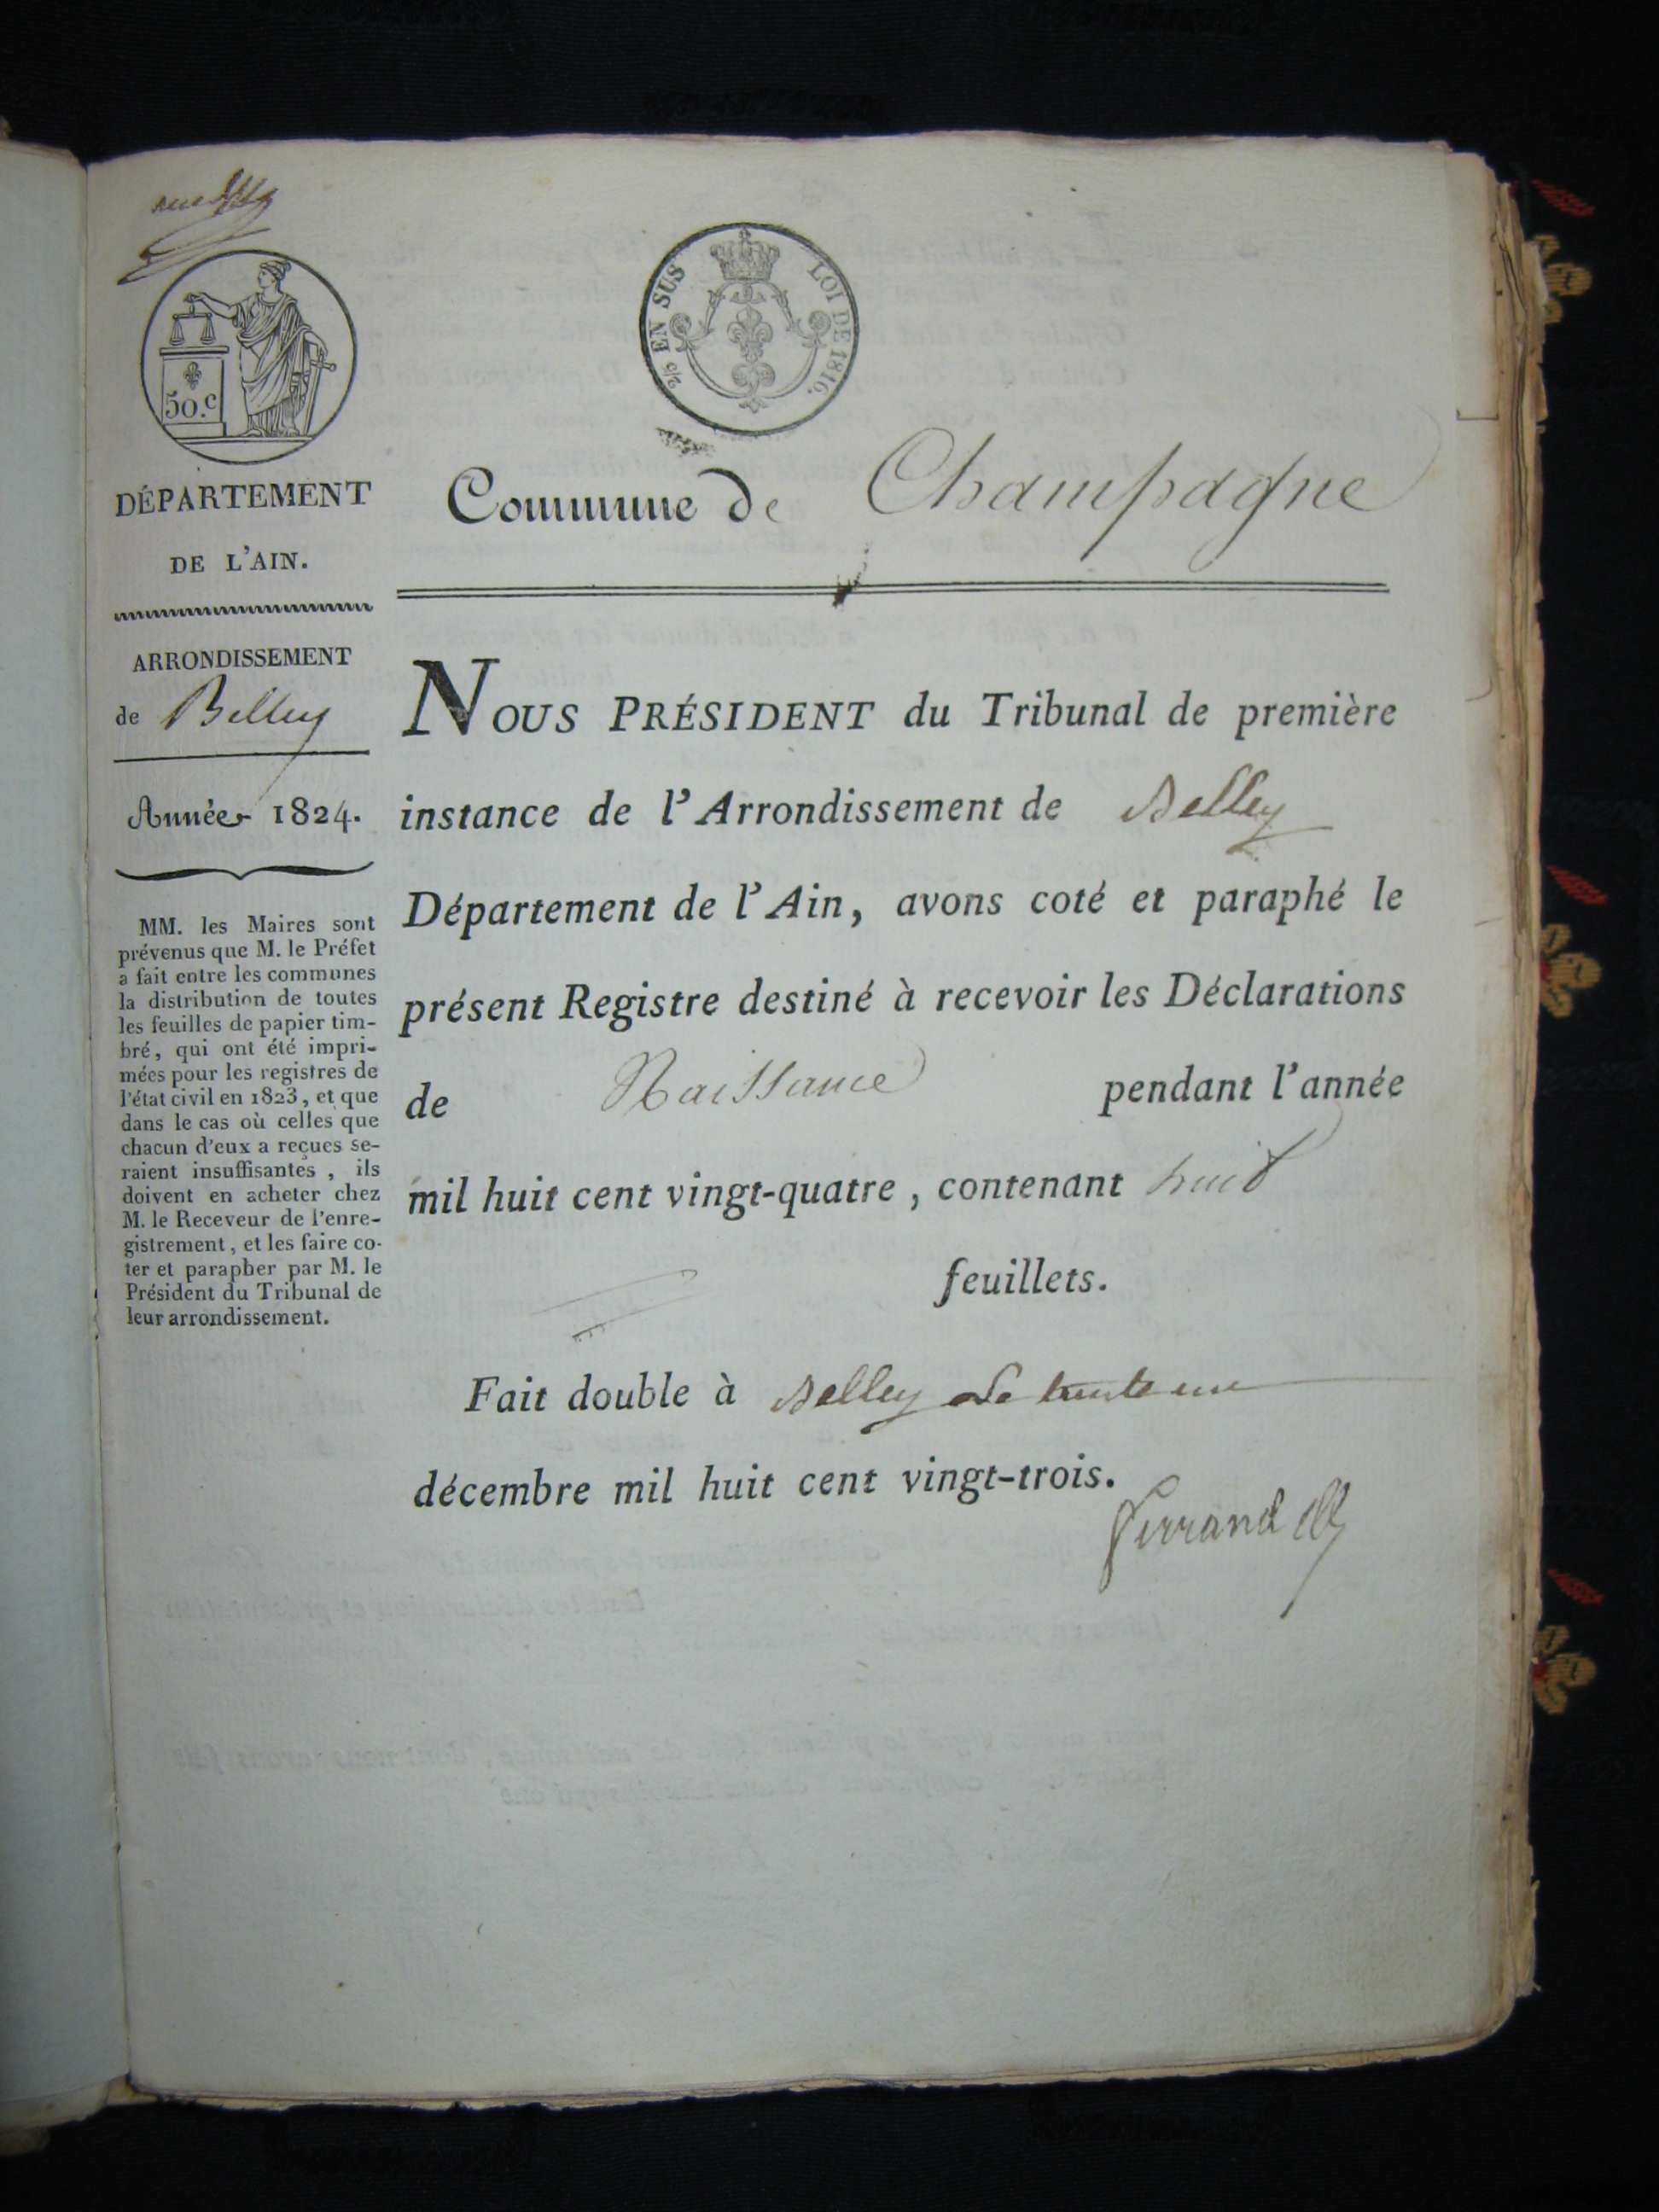 50.c
2/5 EN SUS LOI DE 1816.
DÉPARTEMENT
DE L'AIN.
ARRONDISSEMENT
de Belley
Année 1824.
MM. les Maires sont
prévenus que M. le Préfet
a fait entre les communes
la distribution de toutes
les feuilles de papier tim-
bré, qui ont été impri-
mées pour les registres de
l'état civil en 1823, et que
dans le cas où celles que
chacun d'eux a reçues se-
raient insuffisantes, ils
doivent en acheter chez
M. le Receveur de l'enre-
gistrement, et les faire co-
ter et parapher par M. le
Président du Tribunal de
leur arrondissement.
Commune de Champagne
NOUS PRÉSIDENT du Tribunal de première
instance de l'Arrondissement de Belley
Département de l'Ain, avons coté et paraphé le
présent Registre destiné à recevoir les Déclarations
de Naissance pendant l'année
mil huit cent vingt-quatre, contenant huit
feuillets.
Fait double à Belley Le trente un
décembre mil huit cent vingt-trois.